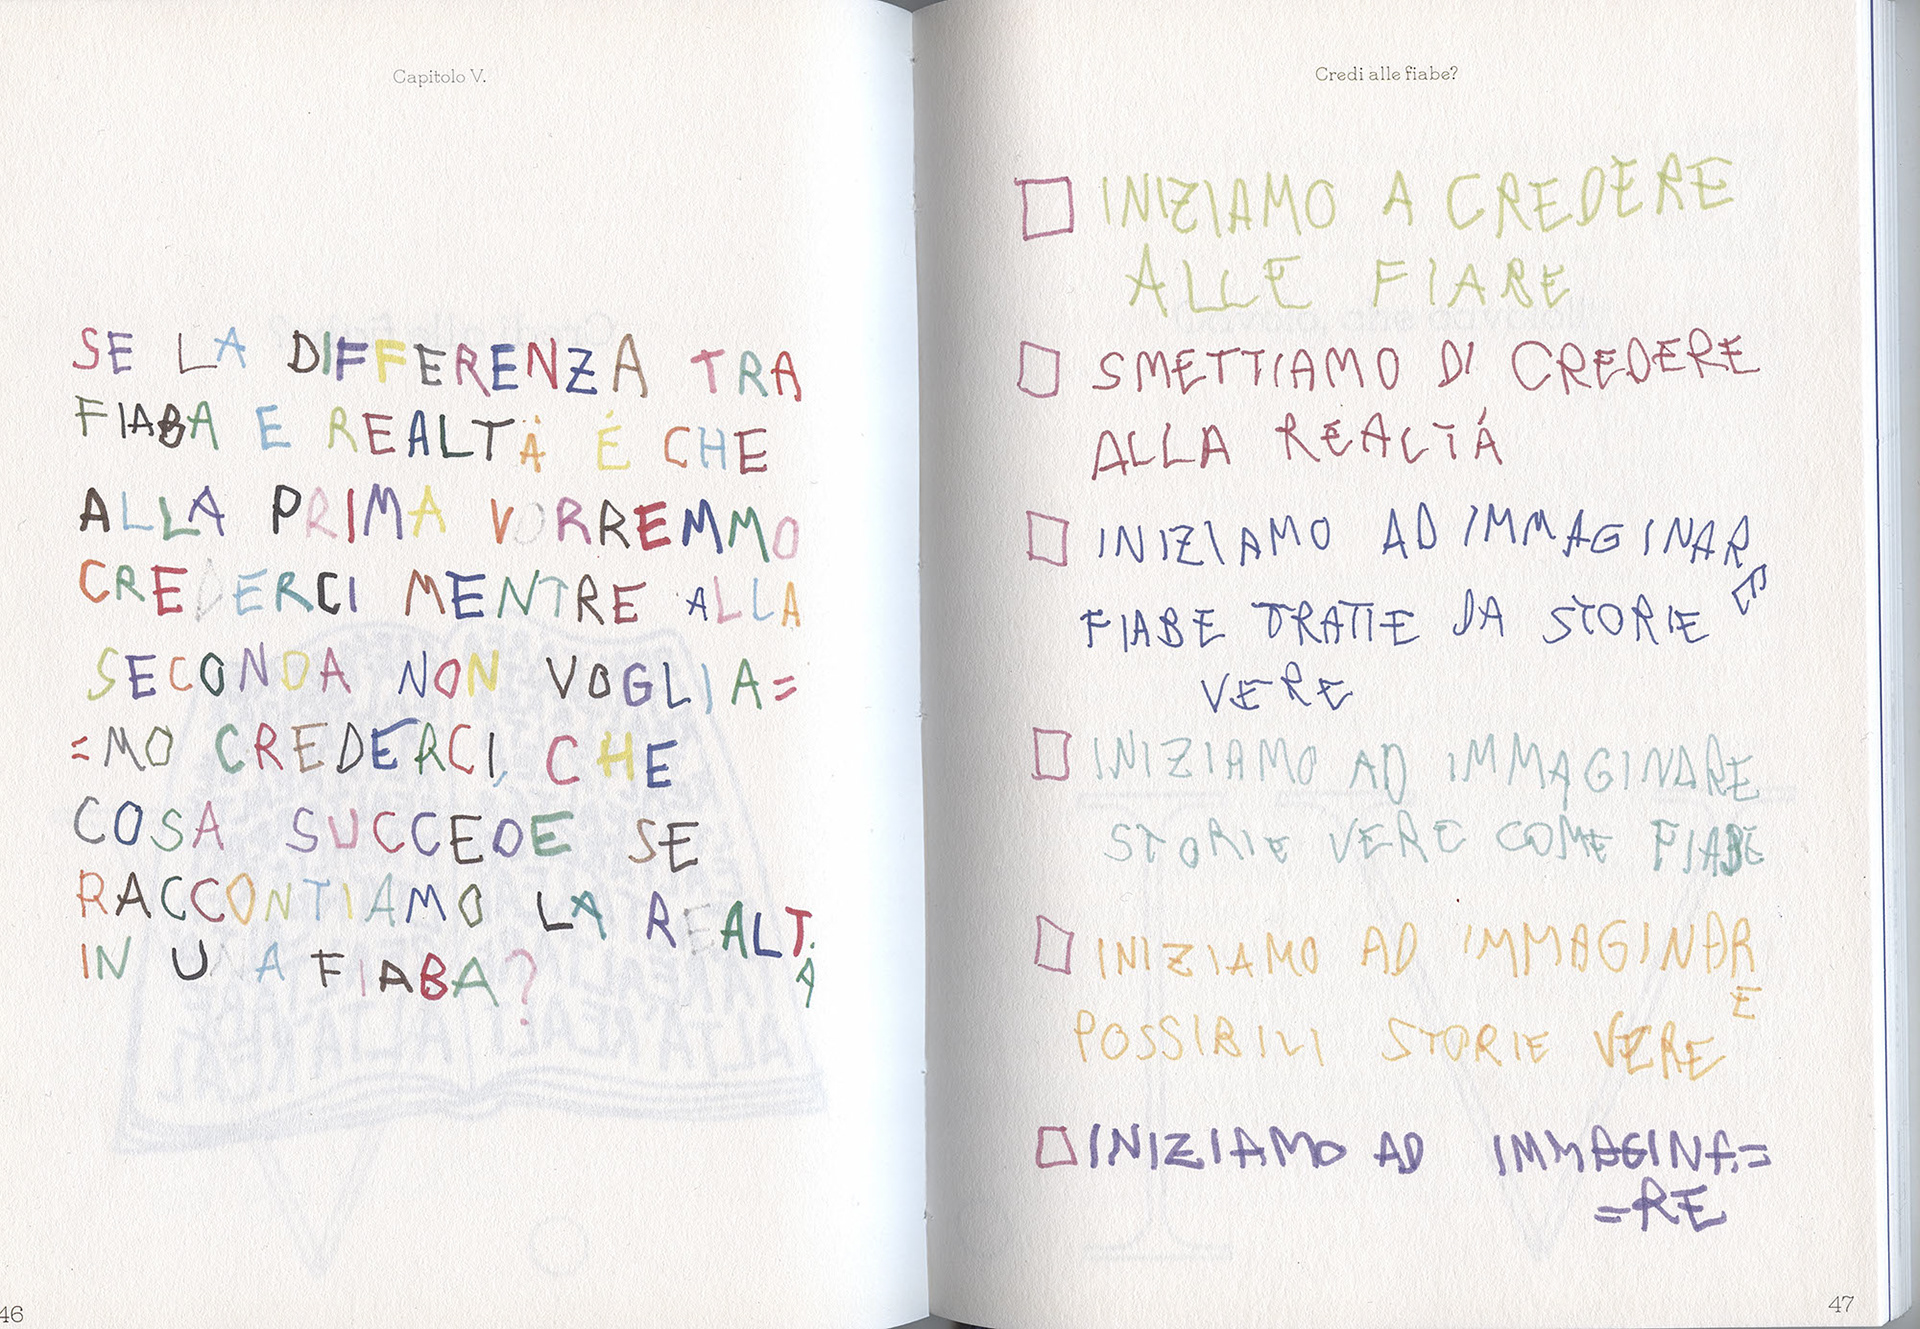 Capitolo V.
SE LA DIFFERENZA TRA
FIABA E REALTÁ É CHE
ALLA PRIMA VORREMMO
CREDERCI MENTRE ALLA
SECONDA NON VOGLIA=
=MO CREDERCI, CHE
COSA SUCCEDE SE
RACCONTIAMO LA REALTÁ
IN UNA FIABA?
46
Credi alle fiabe?
INIZIAMO A CREDERE
ALLE FIABE
SMETTIAMO DI CREDERE
ALLA REALTÁ
INIZIAMO AD IMMAGINARE
FIABE TRATTE DA STORIE
VERE
INIZIAMO AD IMMAGINARE
STORIE VERE COME FIABE
INIZIAMO AD IMMAGINARE
POSSIBILI STORIE VERE
INIZIAMO AD IMMAGINA=
=RE
47